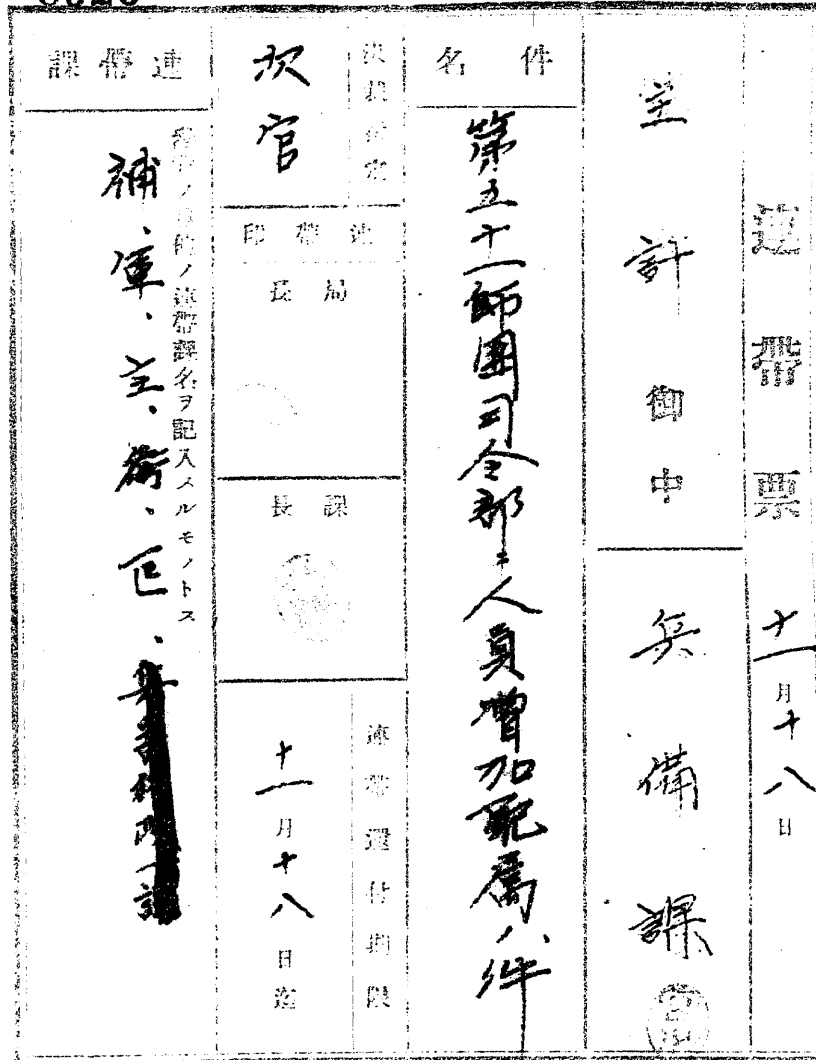 連帶票
十一月十八日
主計御中
兵備課
件名
第五十一師團司令部ニ人員增加配屬ノ件
決裁指定
次官
連帶印
局長
課長
連帶還付期限
十一月十八日迄
連帶課
ノ連帶課名ヲ記入スルモノトス
補、軍、主、衛、医、